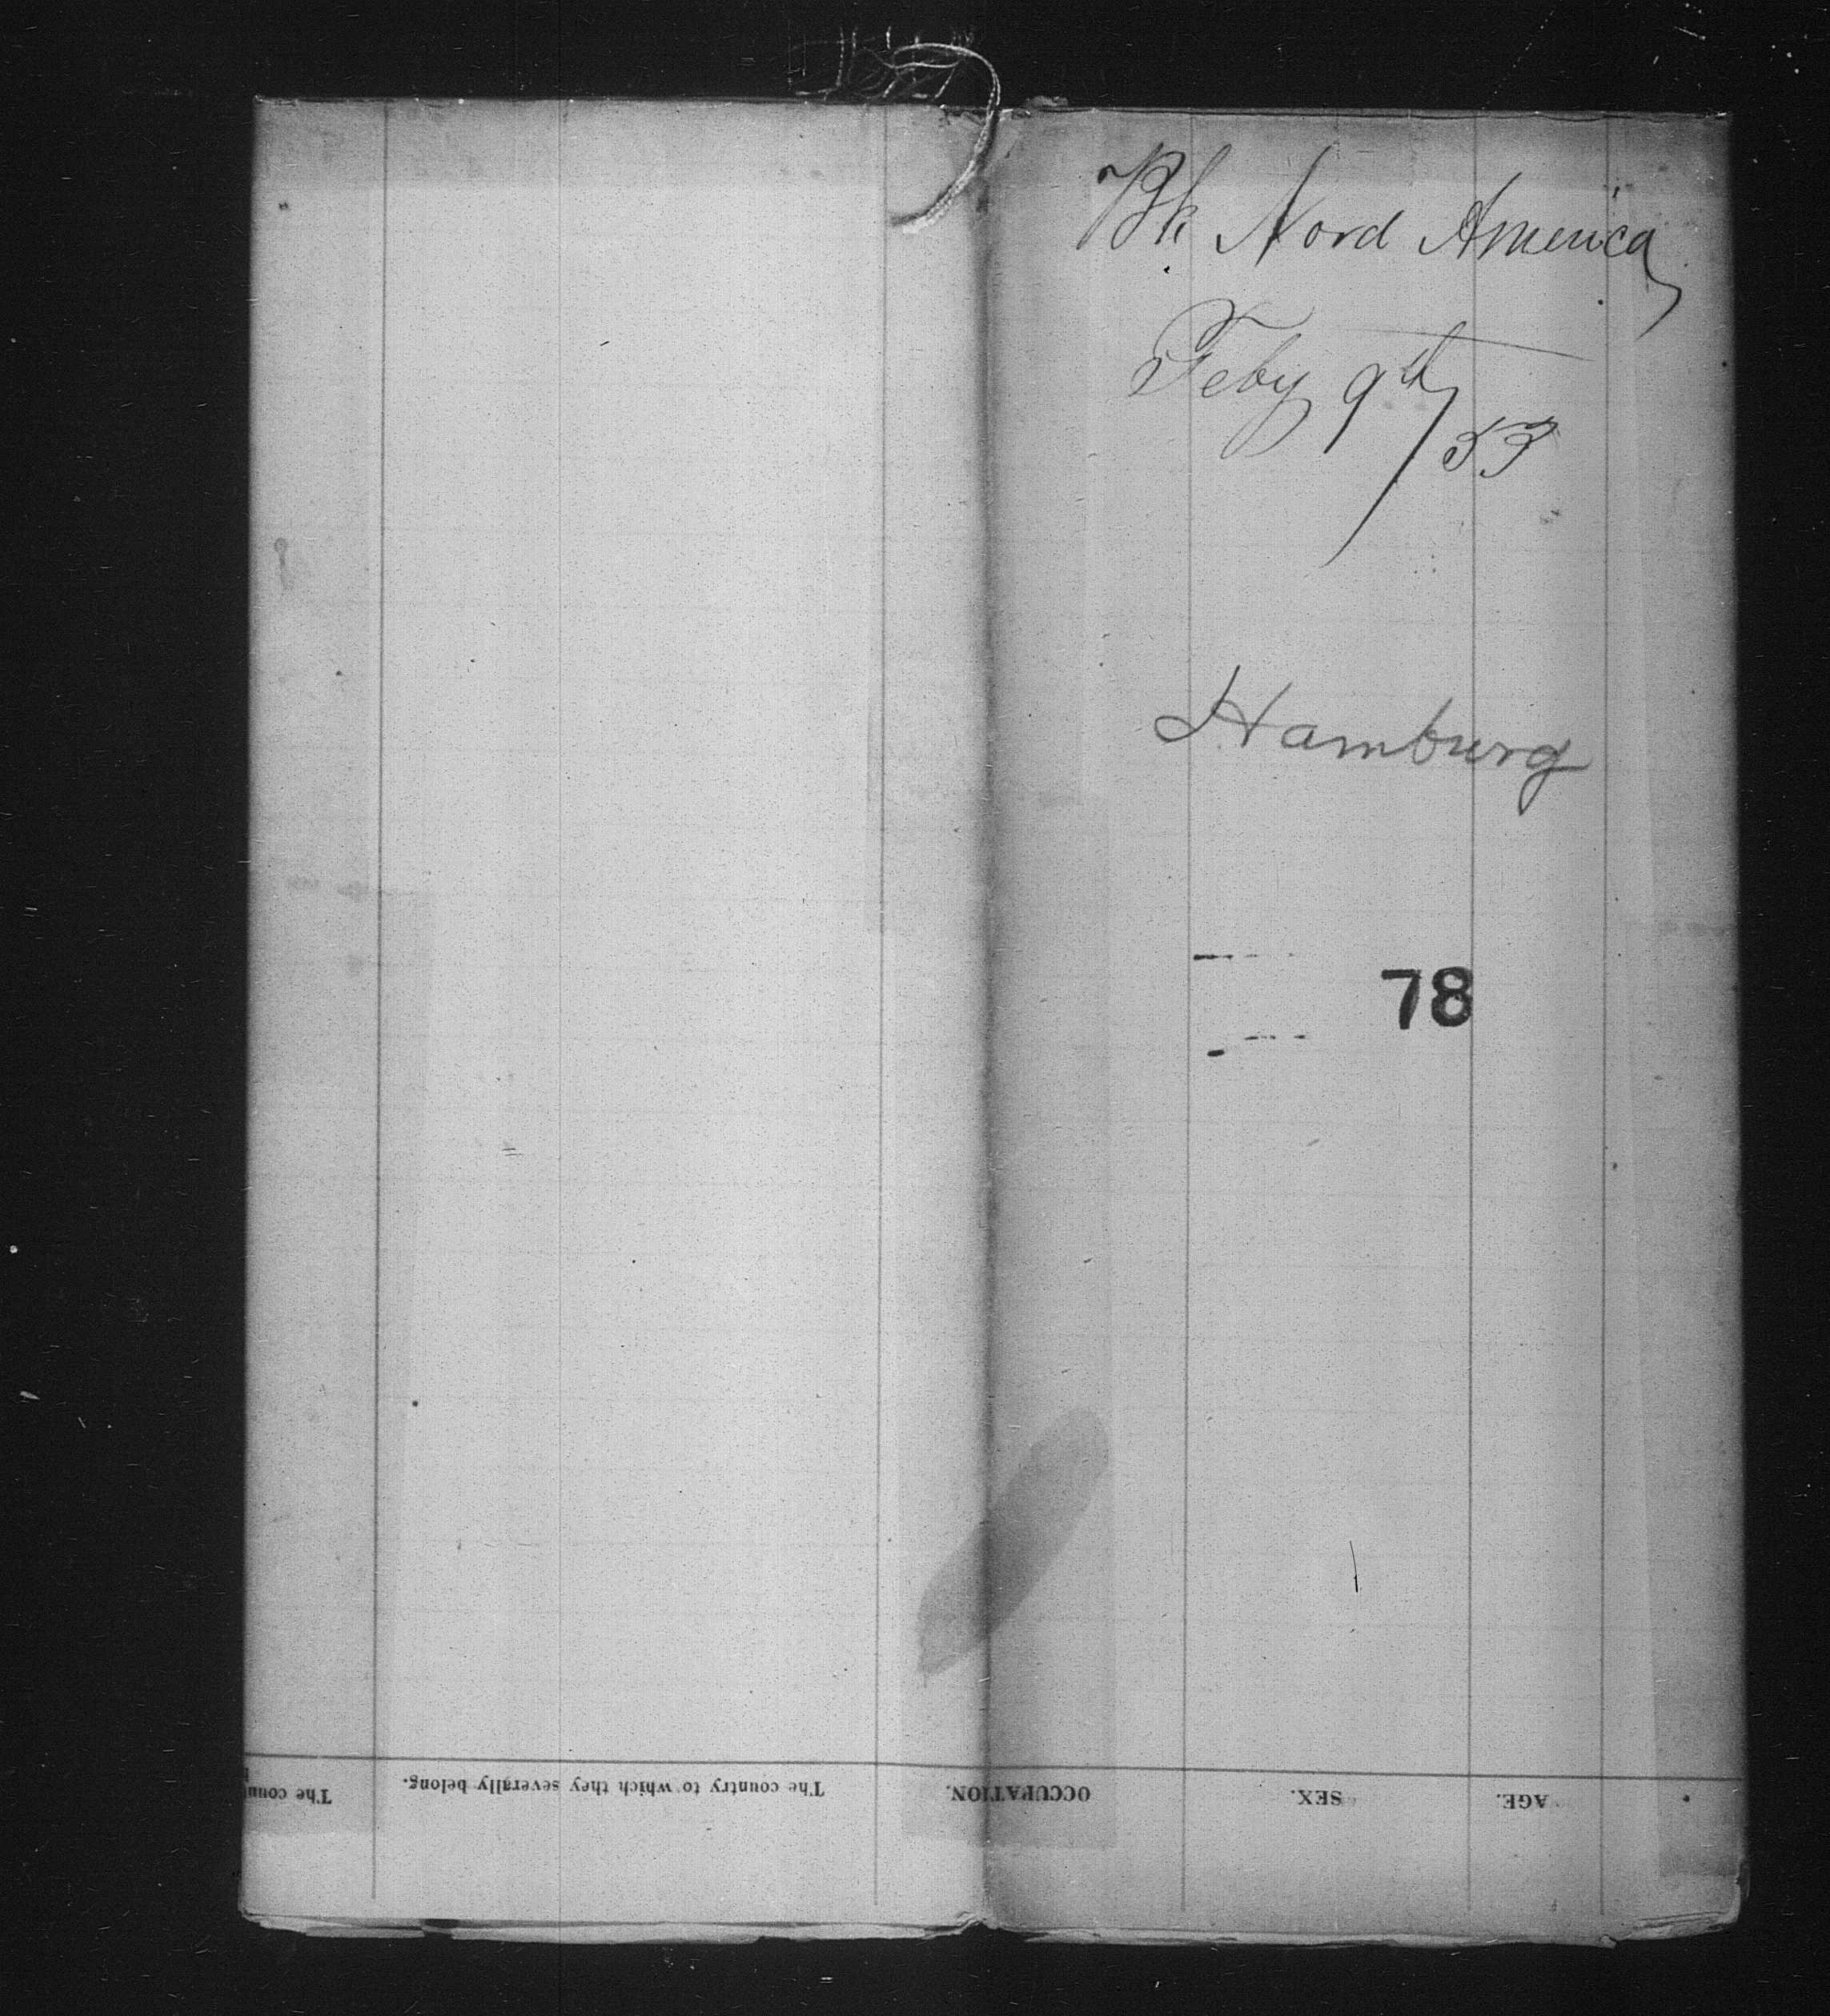 Bk Nord America
Feby 9th/53
Hamburg
78
The coun
The country to which they severally belong.
OCCUPATION.
SEX.
AGE.